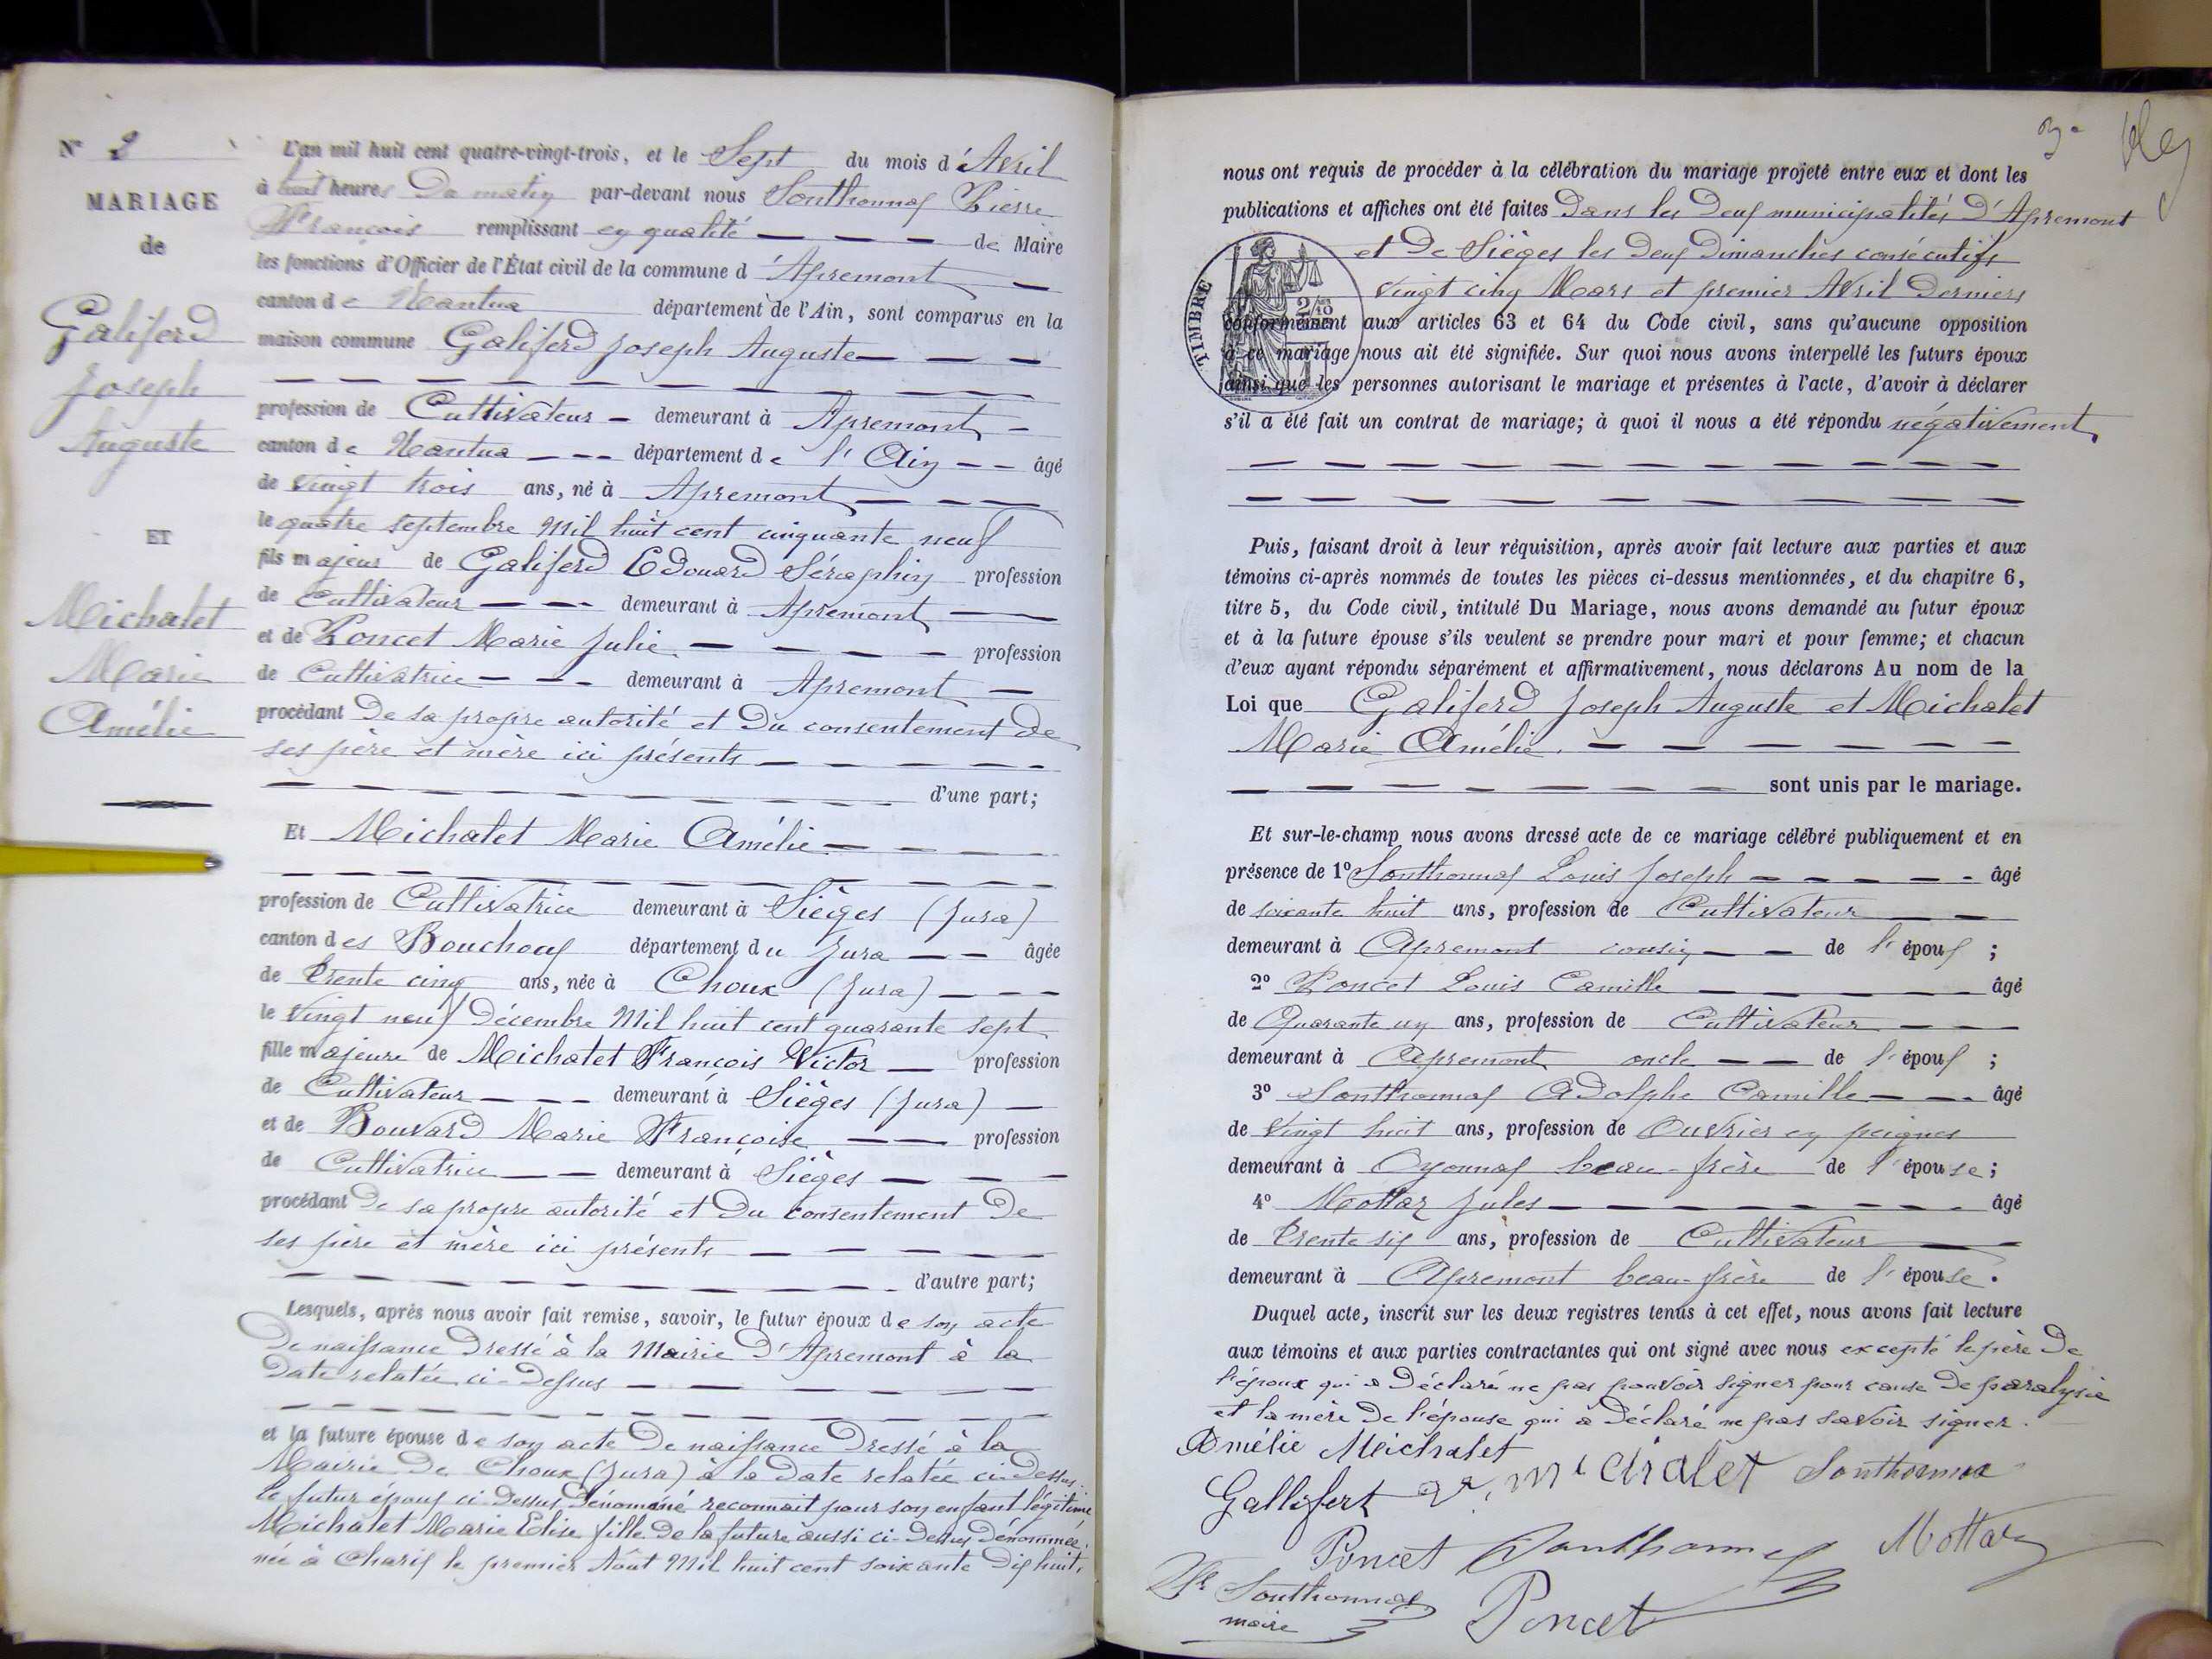 N° 2
MARIAGE
de
Galiferd
Joseph
Auguste
ET
Michalet
Marie
Amélie
L'an mil huit cent quatre-vingt-trois, et le Sept du mois d'Avril
à huit heures Du matin par-devant nous Sonthonnax Pierre
François remplissant en qualité de Maire
les fonctions d'Officier de l'État civil de la commune d'Apremont
canton de Nantua département de l'Ain, sont comparus en la
maison commune Galiferd Joseph Auguste
profession de Cultivateur demeurant à Apremont
canton de Nantua département de l'Ain âgé
de vingt trois ans, né à Apremont
le quatre septembre Mil huit cent cinquante neuf
fils majeur de Galiferd Edouard Séraphin profession
de Cultivateur demeurant à Apremont
et de Poncet Marie Julie profession
de Cultivatrice demeurant à Apremont
procédant De sa propre autorité et Du consentement de
ses père et mère ici présents
d'une part;
Et Michalet Marie Amélie
profession de Cultivatrice demeurant à Sièges (Jura)
canton des Bouchoux département du Jura âgée
de trente cinq ans, née à Choux (Jura)
le Vingt neuf Décembre Mil huit cent quarante sept
fille majeure de Michalet François Victor profession
de Cultivateur demeurant à Sièges (Jura)
et de Bouvard Marie Françoise profession
de Cultivatrice demeurant à Sièges
procédant De sa propre autorité et Du consentement De
ses père et mère ici présents
d'autre part;
Lesquels, après nous avoir fait remise, savoir, le futur époux de son acte
De naissance Dressé à la Mairie D'Apremont à la
Date relatée ci-Dessus
et la future épouse de son acte De naissance Dressé à la
Mairie De Choux (Jura) à la Date relatée ci-Dessus.
le futur époux ci-Dessus Dénommé reconnait pour son enfant légitime
Michalet Marie Elise fille De la future aussi ci-Dessus Dénommée,
née à Charix le premier Août Mil huit cent soixante Dix huit,
3e
nous ont requis de procéder à la célébration du mariage projeté entre eux et dont les
publications et affiches ont été faites Dans les Deux municipalités D'Apremont
et De Sièges les Deux Dimanches consécutifs
vingt cinq Mars et premier Avril Derniers
TIMBRE
2/10
conformément aux articles 63 et 64 du Code civil, sans qu'aucune opposition
à ce mariage nous ait été signifiée. Sur quoi nous avons interpellé les futurs époux
ainsi que les personnes autorisant le mariage et présentes à l'acte, d'avoir à déclarer
s'il a été fait un contrat de mariage; à quoi il nous a été répondu négativement,
Puis, faisant droit à leur réquisition, après avoir fait lecture aux parties et aux
témoins ci-après nommés de toutes les pièces ci-dessus mentionnées, et du chapitre 6,
titre 5, du Code civil, intitulé Du Mariage, nous avons demandé au futur époux
et à la future épouse s'ils veulent se prendre pour mari et pour femme; et chacun
d'eux ayant répondu séparément et affirmativement, nous déclarons Au nom de la
Loi que Galiferd Joseph Auguste et Michalet
Marie Amélie.
sont unis par le mariage.
Et sur-le-champ nous avons dressé acte de ce mariage célébré publiquement et en
présence de 1° Sonthonnax Louis Joseph âgé
de soixante huit ans, profession de Cultivateur
demeurant à Apremont cousin de l'époux ;
2° Poncet Louis Camille âgé
de Quarante un ans, profession de Cultivateur
demeurant à Apremont oncle de l'époux ;
3° Sonthonnax Adolphe Camille âgé
de Vingt huit ans, profession de Ouvrier en peignes
demeurant à Oyonnax beau-frère de l'épouse;
4° Mottaz Jules âgé
de trente six ans, profession de Cultivateur
demeurant à Apremont beau-frère de l'épouse.
Duquel acte, inscrit sur les deux registres tenus à cet effet, nous avons fait lecture
aux témoins et aux parties contractantes qui ont signé avec nous excepté le père De
l'époux qui a Déclaré ne pas pouvoir signer pour cause De paralysie
et la mère De l'épouse qui a Déclaré ne pas savoir signer.
Amélie Michalet
Gallifert Michalet Sonthonnax
Poncet Sonthonnax Mottaz
Sonthonnax
maire
Poncet